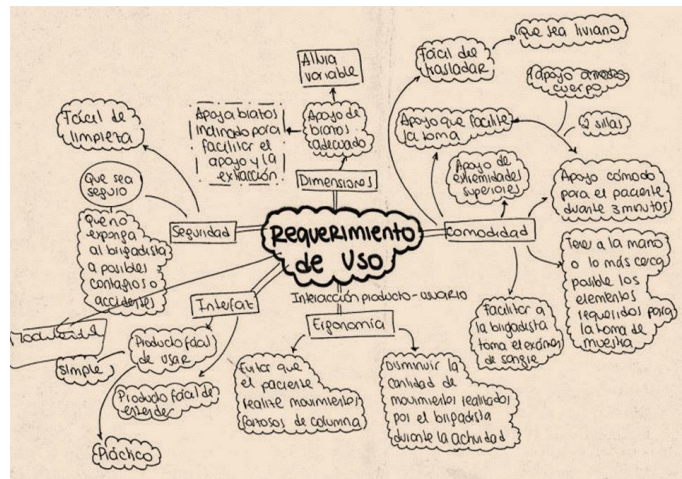 Requerimiento
de uso
Interacción producto-usuario
Dimensiones
Altura
variable
Apoyo de
brazos
adecuado
Apoya brazos
inclinado para
facilitar el
apoyo y la
extracción
Seguridad
Fácil de
limpieza
Que sea
seguro
Que no
exponga
al brigadista
a posibles
contagios o
accidentes
Interfaz
Producto fácil
de usar
Simple
Producto fácil de
Práctico
Ergonomía
Evitar que
el paciente
realize movimientos
forzosos de columna
Disminuir la
cantidad de
movimientos realizados
por el brigadista
durante la actividad
Comodidad
Fácil de
trasladar
Que sea liviano
Apoyo que facilite
la toma
Apoyo
cuerpo
2 sillas
Apoyo de
extremidades
superiores
Apoyo cómodo
para el paciente
durante 3 minutos
Tener a la mano
o lo más cerca
posible los
elementos
requeridos para
la toma de
muestra
Facilitar a
la brigadista
toma el exámen
de sangre